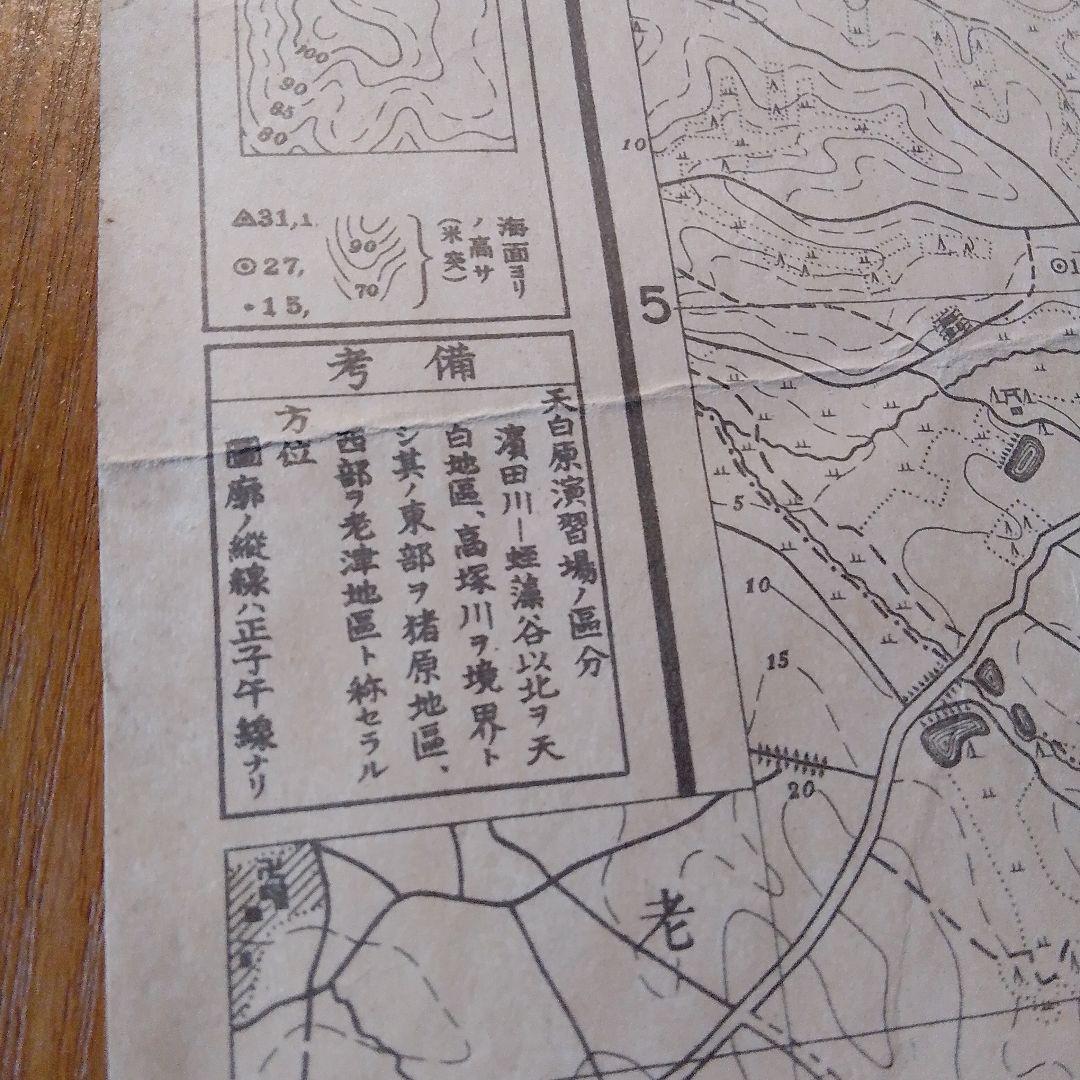 100
90
85
80
31,1
27,
15,
90
70
海面ヨリ
ノ高サ
(米突)
備考
天白原演習場ノ區分
濱田川―蛭藻谷以北ヲ天
白地區、高塚川ヲ境界ト
シ其ノ東部ヲ猪原地區、
西部ヲ老津地區ト称セラル
方位
圖廓ノ縦線ハ正子午線ナリ
10
5
5
10
15
20
老